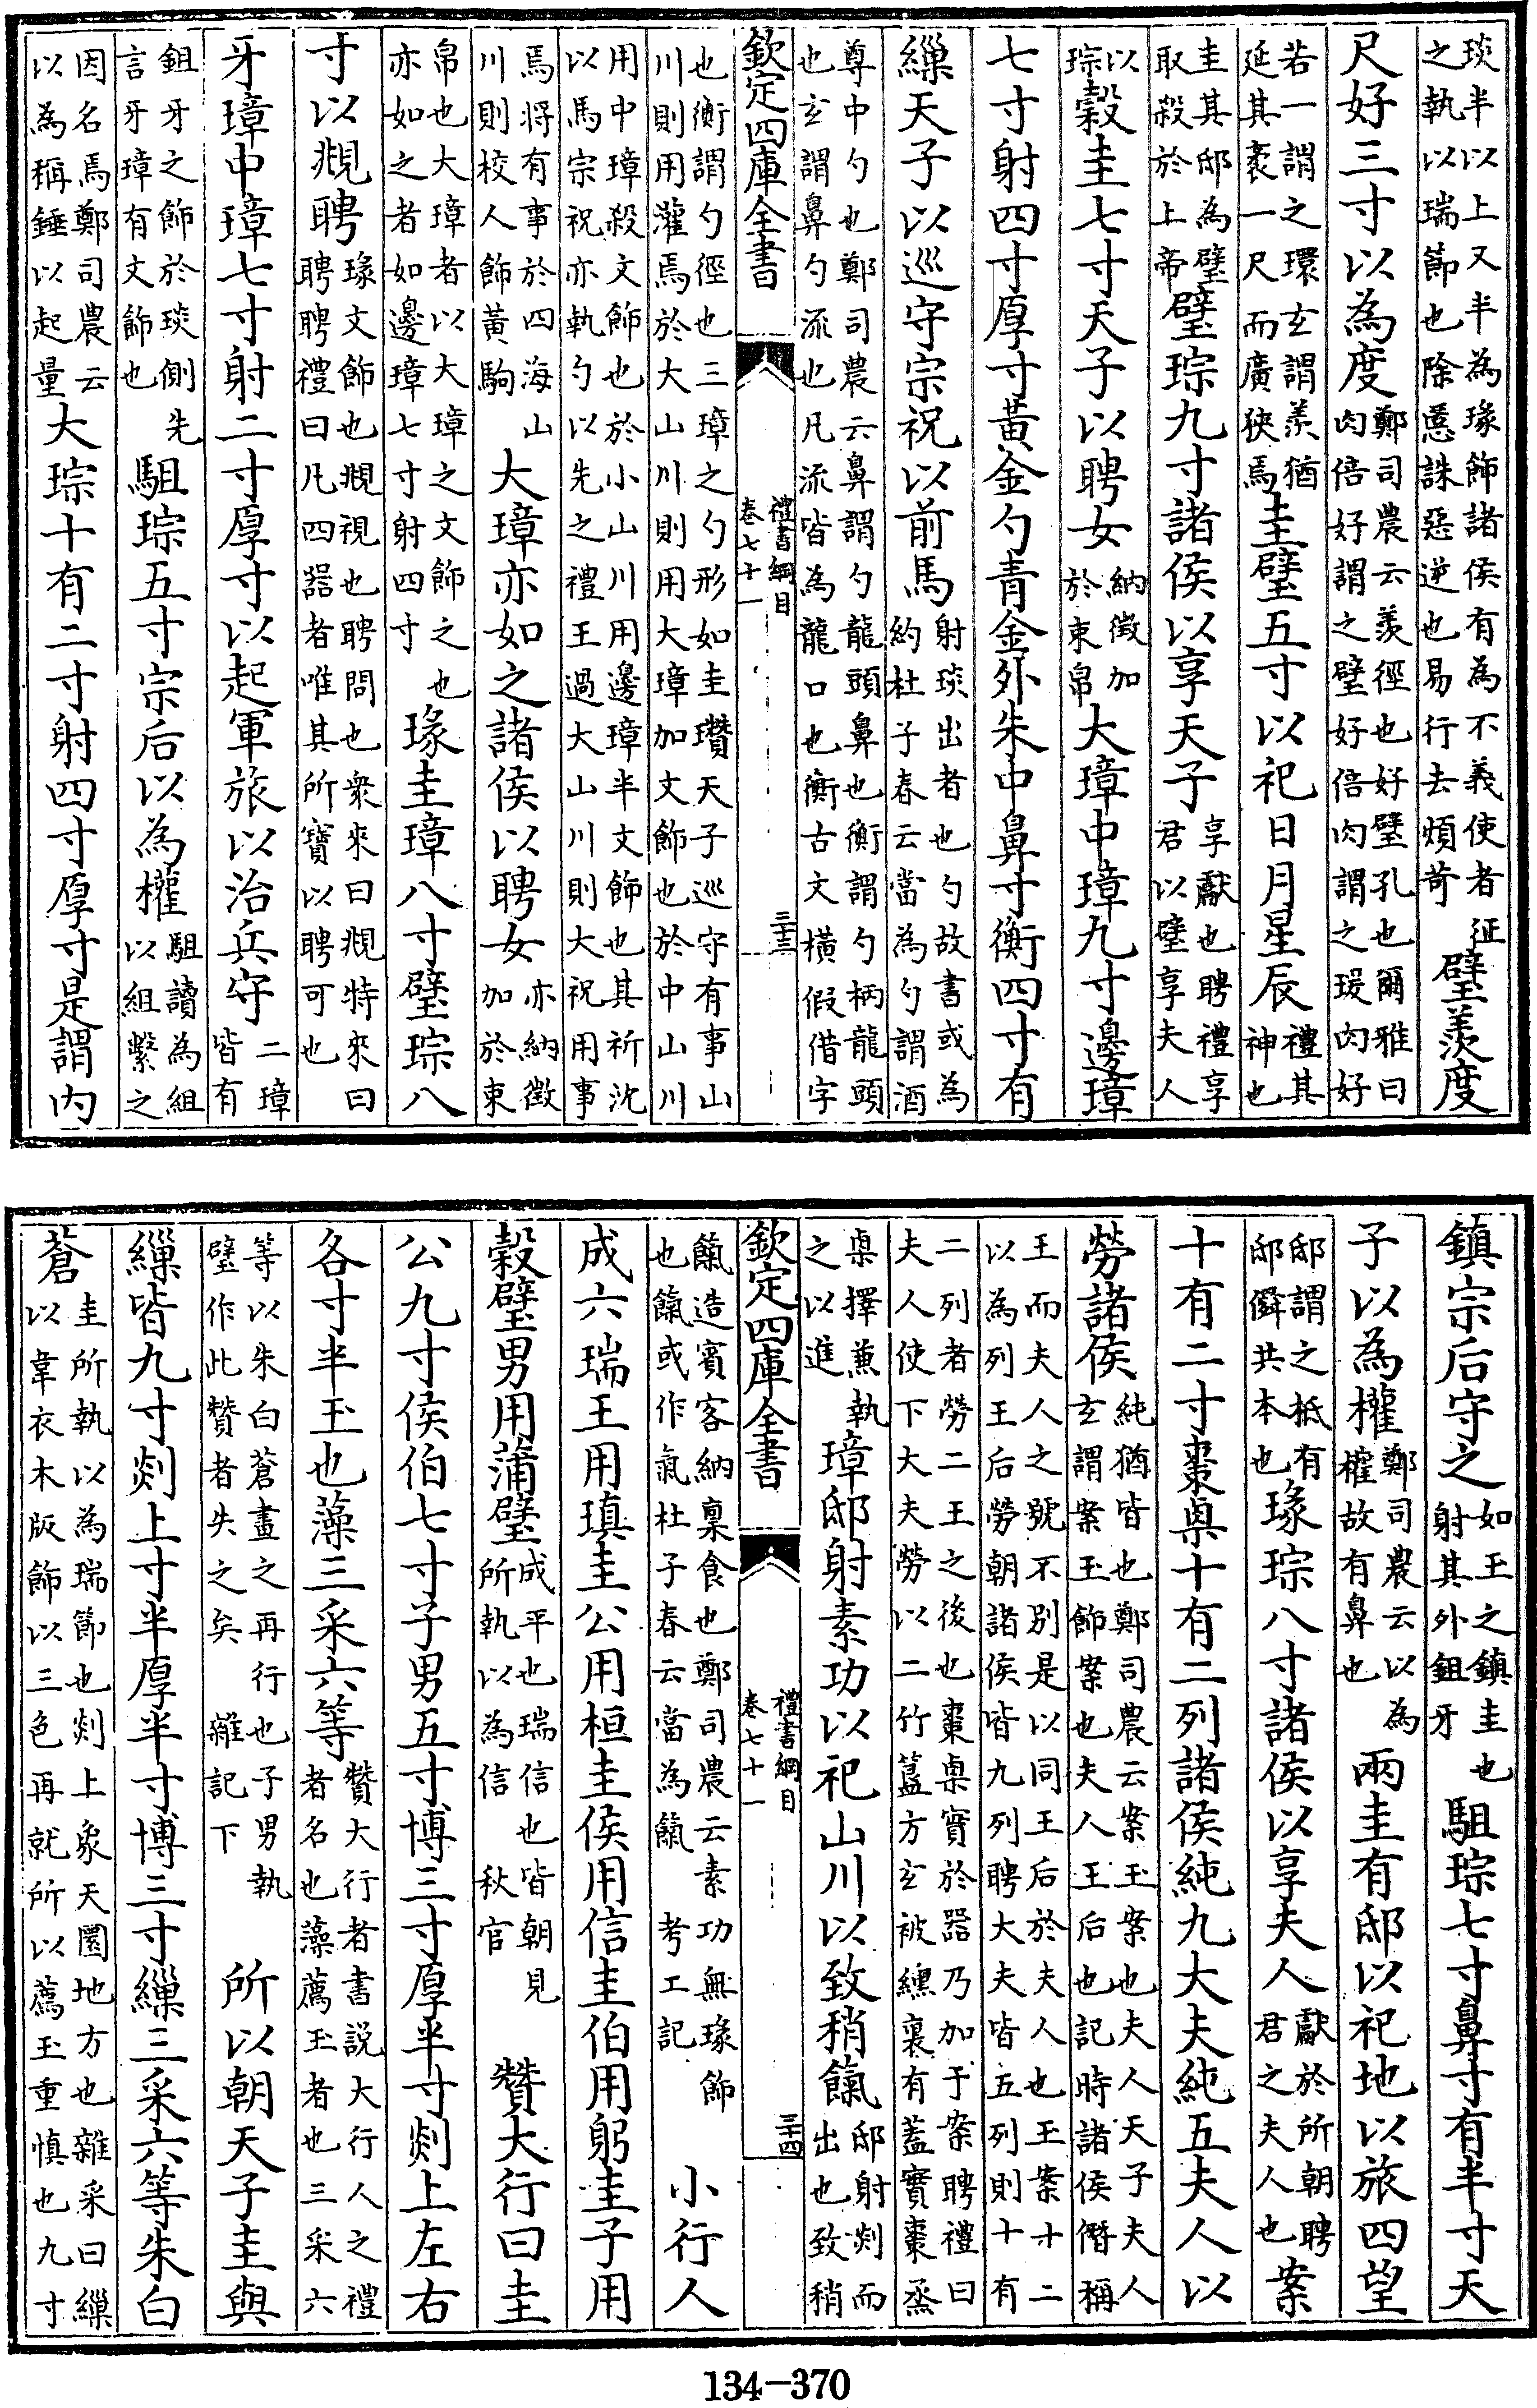 琰半以上又半為瑑飾諸侯有為不義使者征
之執以瑞節也除慝誅惡逆也易行去煩苛
璧羨度
尺好三寸以為度
鄭司農云羨徑也好璧孔也爾雅曰
肉倍好謂之璧好倍肉謂之瑗肉好
若一謂之環玄謂羨猶
延其袤一尺而廣狹焉
圭璧五寸以祀日月星辰
禮其
神也
圭其邸為璧
取殺於上帝
璧琮九寸諸侯以享天子
享獻也聘禮享
君以璧享夫人
以
琮
穀圭七寸天子以聘女
納徵加
於束帛
大璋中璋九寸邊璋
七寸射四寸厚寸黃金勺青金外朱中鼻寸衡四寸有
繅天子以巡守宗祝以前馬
射琰出者也勺故書或為
約杜子春云當為勺謂酒
尊中勺也鄭司農云鼻謂勺龍頭鼻也衡謂勺柄龍頭
也玄謂鼻勺流也凡流皆為龍口也衡古文橫假借字
欽定四庫全書
禮書綱目
卷七十一
三十三
也衡謂勺徑也三璋之勺形如圭瓚天子巡守有事山
川則用灌焉於大山川則用大璋加文飾也於中山川
用中璋殺文飾也於小山川用邊璋半文飾也其祈沈
以馬宗祝亦執勺以先之禮王過大山川則大祝用事
焉將有事於四海山
川則校人飾黃駒
大璋亦如之諸侯以聘女
亦納徵
加於束
帛也大璋者以大璋之文飾之也
亦如之者如邊璋七寸射四寸
瑑圭璋八寸璧琮八
寸以覜聘
瑑文飾也覜視也聘問也衆來曰覜特來曰
聘聘禮曰凡四器者唯其所寶以聘可也
牙璋中璋七寸射二寸厚寸以起軍旅以治兵守
二璋
皆有
鉏牙之飾於琰側先
言牙璋有文飾也
駔琮五寸宗后以為權
駔讀為組
以組繫之
因名焉鄭司農云
以為稱錘以起量
大琮十有二寸射四寸厚寸是謂內
鎮宗后守之
如王之鎮圭也
射其外鉏牙
駔琮七寸鼻寸有半寸天
子以為權
鄭司農云以為
權故有鼻也
兩圭有邸以祀地以旅四望
邸謂之柢有
邸僢共本也
瑑琮八寸諸侯以享夫人
獻於所朝聘
君之夫人也
案
十有二寸棗㮚十有二列諸侯純九大夫純五夫人以
勞諸侯
純猶皆也鄭司農云案玉案也夫人天子夫人
玄謂案玉飾案也夫人王后也記時諸侯僭稱
王而夫人之號不別是以同王后於夫人也王案十二
以為列王后勞朝諸侯皆九列聘大夫皆五列則十有
二列者勞二王之後也棗㮚實於器乃加于案聘禮曰
夫人使下大夫勞以二竹簋方玄被纁裏有蓋實棗蒸
㮚擇兼執
之以進
璋邸射素功以祀山川以致稍餼
邸射剡而
出也致稍
欽定四庫全書
禮書綱目
卷七十一
三十四
餼造賓客納稟食也鄭司農云素功無瑑飾
也餼或作氣杜子春云當為餼
考工記
小行人
成六瑞王用瑱圭公用桓圭侯用信圭伯用躬圭子用
穀璧男用蒲璧
成平也瑞信也皆朝見
所執以為信
秋官
贊大行曰圭
公九寸侯伯七寸子男五寸博三寸厚半寸剡上左右
各寸半玉也藻三采六等
贊大行者書説大行人之禮
者名也藻薦玉者也三采六
等以朱白蒼畫之再行也子男執
璧作此贊者失之矣
雜記下
所以朝天子圭與
繅皆九寸剡上寸半厚半寸博三寸繅三采六等朱白
蒼
圭所執以為瑞節也剡上象天圜地方也雜采曰繅
以韋衣木版飾以三色再就所以薦玉重慎也九寸
134-370